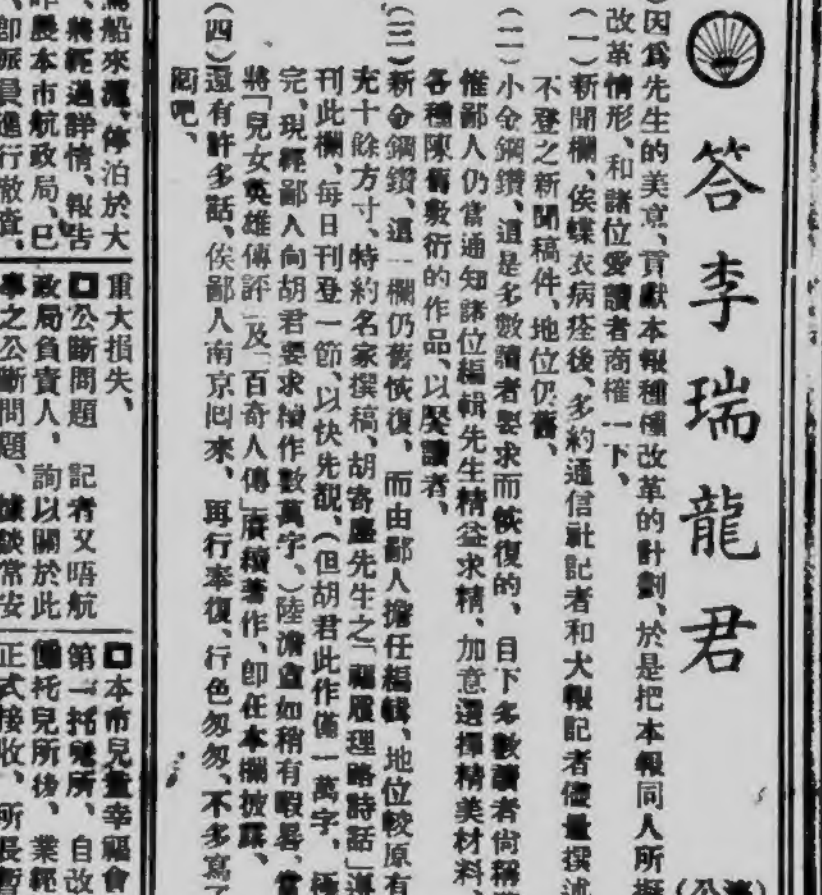 答李瑞龍君
因爲先生的美意、貢獻本報種種改革的計劃、於是把本報同人所
改革情形、和諸位愛讀者商榷一下、
(一)新聞欄、俟蝶衣病痊後、多約通信社記者和大報記者儘量撰述
不登之新聞稿件、地位仍舊、
(二)小金鋼鑽、這是多數讀者要求而恢復的、目下多數讀者尙稱
惟鄙人仍當通知諸位編輯先生精益求精、加意選擇精美材料、
各種陳舊敷衍的作品、以 讀者、
(三)新金鋼鑽、這一欄仍舊恢復、而由鄙人擔任編輯、地位較原有
充十餘方寸、特約名家撰稿、胡寄塵先生之「 理路詩話」
刊此欄、每日刊登一節、以快先覩、(但胡君此作僅一萬字、
完、現經鄙人向胡君要求續作數萬字、)陸澹盦如稍有暇晷、當
將「兒女英雄傳評」及「百奇人傳」賡續著作、卽在本欄披露、
(四)還有許多話、俟鄙人南京囘來、再行奉復、行色匆匆、不多寫了
罷吧、
船來滬、停泊於大
將經過詳情、報告
本市航政局、已
卽派員進行散查、
重大損失、
口公斷問題 記者又晤航
政局負責人、詢以關於此
事之公斷問題、據談常安
口本市兒童幸福會
第一托兒所、自改
托兒所後、業經
正式接收、所長暫